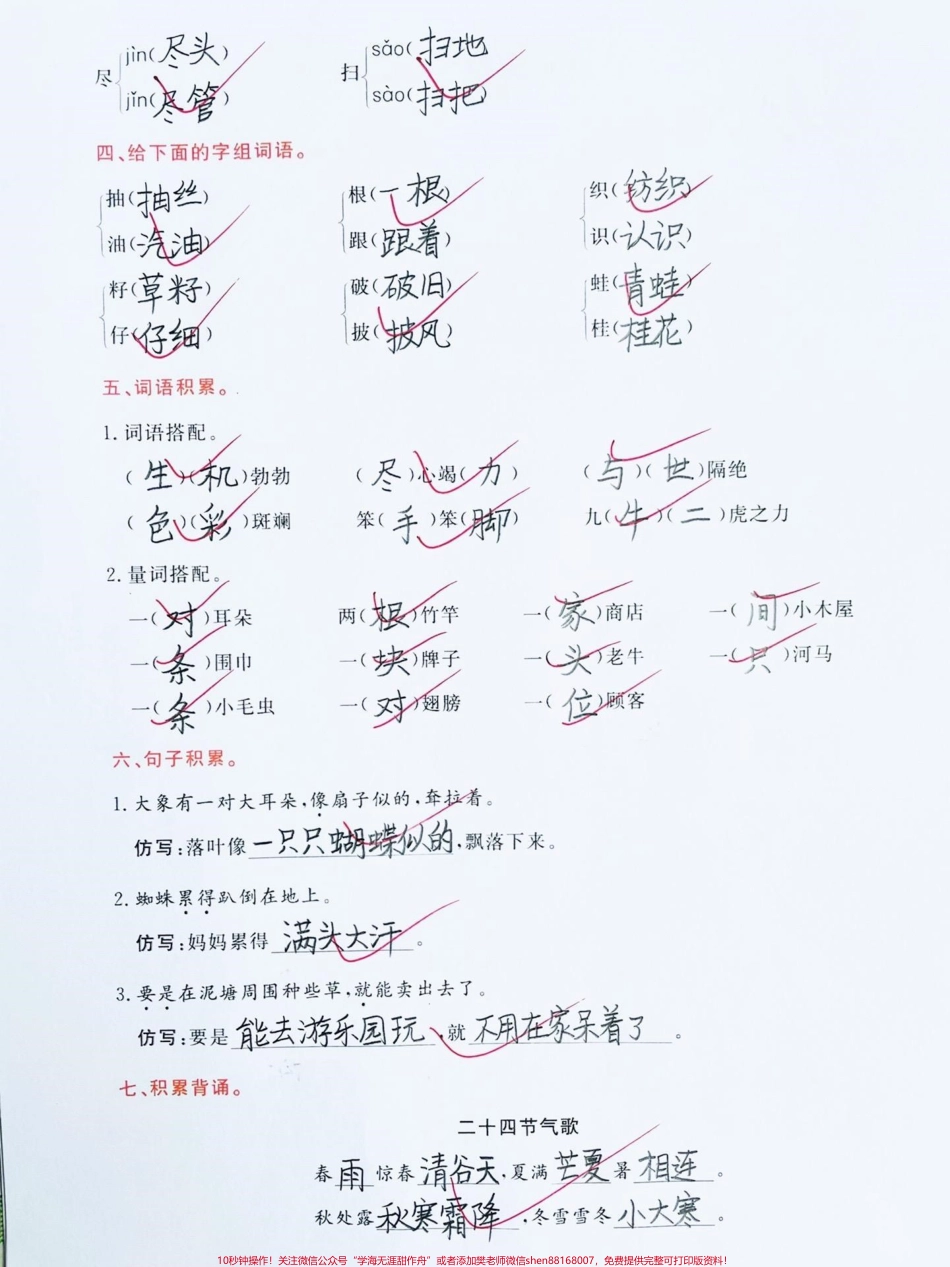 尽 jìn(尽头) 扫 sǎo(扫地)
jǐn(尽管) sào(扫把)
四、给下面的字组词语。
抽(抽丝) 根(一根) 织(纺织)
油(汽油) 跟(跟着) 识(认识)
籽(草籽) 破(破旧) 蛙(青蛙)
仔(仔细) 披(披风) 桂(桂花)
五、词语积累。
1.词语搭配。
(生)(机)勃勃 (尽)心竭(力) (与)(世)隔绝
(色)(彩)斑斓 笨(手)笨(脚) 九(牛)(二)虎之力
2.量词搭配。
一(对)耳朵 两(根)竹竿 一(家)商店 一(间)小木屋
一(条)围巾 一(块)牌子 一(头)老牛 一(只)河马
一(条)小毛虫 一(对)翅膀 一(位)顾客
六、句子积累。
1.大象有一对大耳朵,像扇子似的,耷拉着。
仿写:落叶像一只只蝴蝶似的,飘落下来。
2.蜘蛛累得趴倒在地上。
仿写:妈妈累得满头大汗。
3.要是在泥塘周围种些草,就能卖出去了。
仿写:要是能去游乐园玩,就不用在家呆着了。
七、积累背诵。
二十四节气歌
春雨惊春清谷天,夏满芒夏暑相连。
秋处露秋寒霜降,冬雪雪冬小大寒。
10秒钟操作！关注微信公众号“学海无涯甜作舟”或者添加樊老师微信shen88168007，免费提供完整可打印版资料！